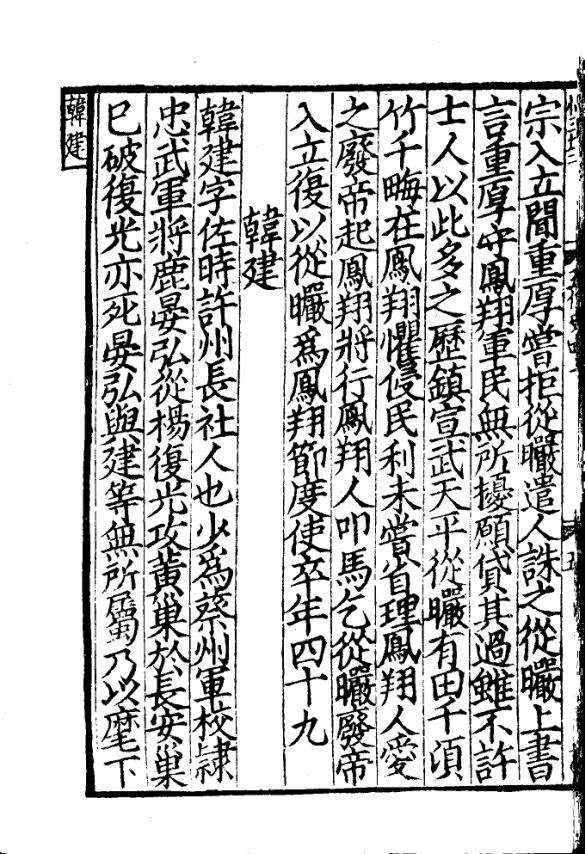 宗入立聞重厚嘗拒從曮遣人誅之從曮上書
言重厚守鳳翔軍民無所擾願貸其過雖不許
士人以此多之歷鎮宣武天平從曮有田千頃
竹千畮在鳳翔懼侵民利未嘗省理鳳翔人愛
之廢帝起鳳翔將行鳳翔人叩馬乞從曮廢帝
入立復以從曮爲鳳翔節度使卒年四十九
韓建
韓建字佐時許州長社人也少爲蔡州軍校隷
忠武軍將鹿晏弘從楊復光攻黃巢於長安巢
已破復光亦死晏弘與建等無所屬乃以麾下
韓建